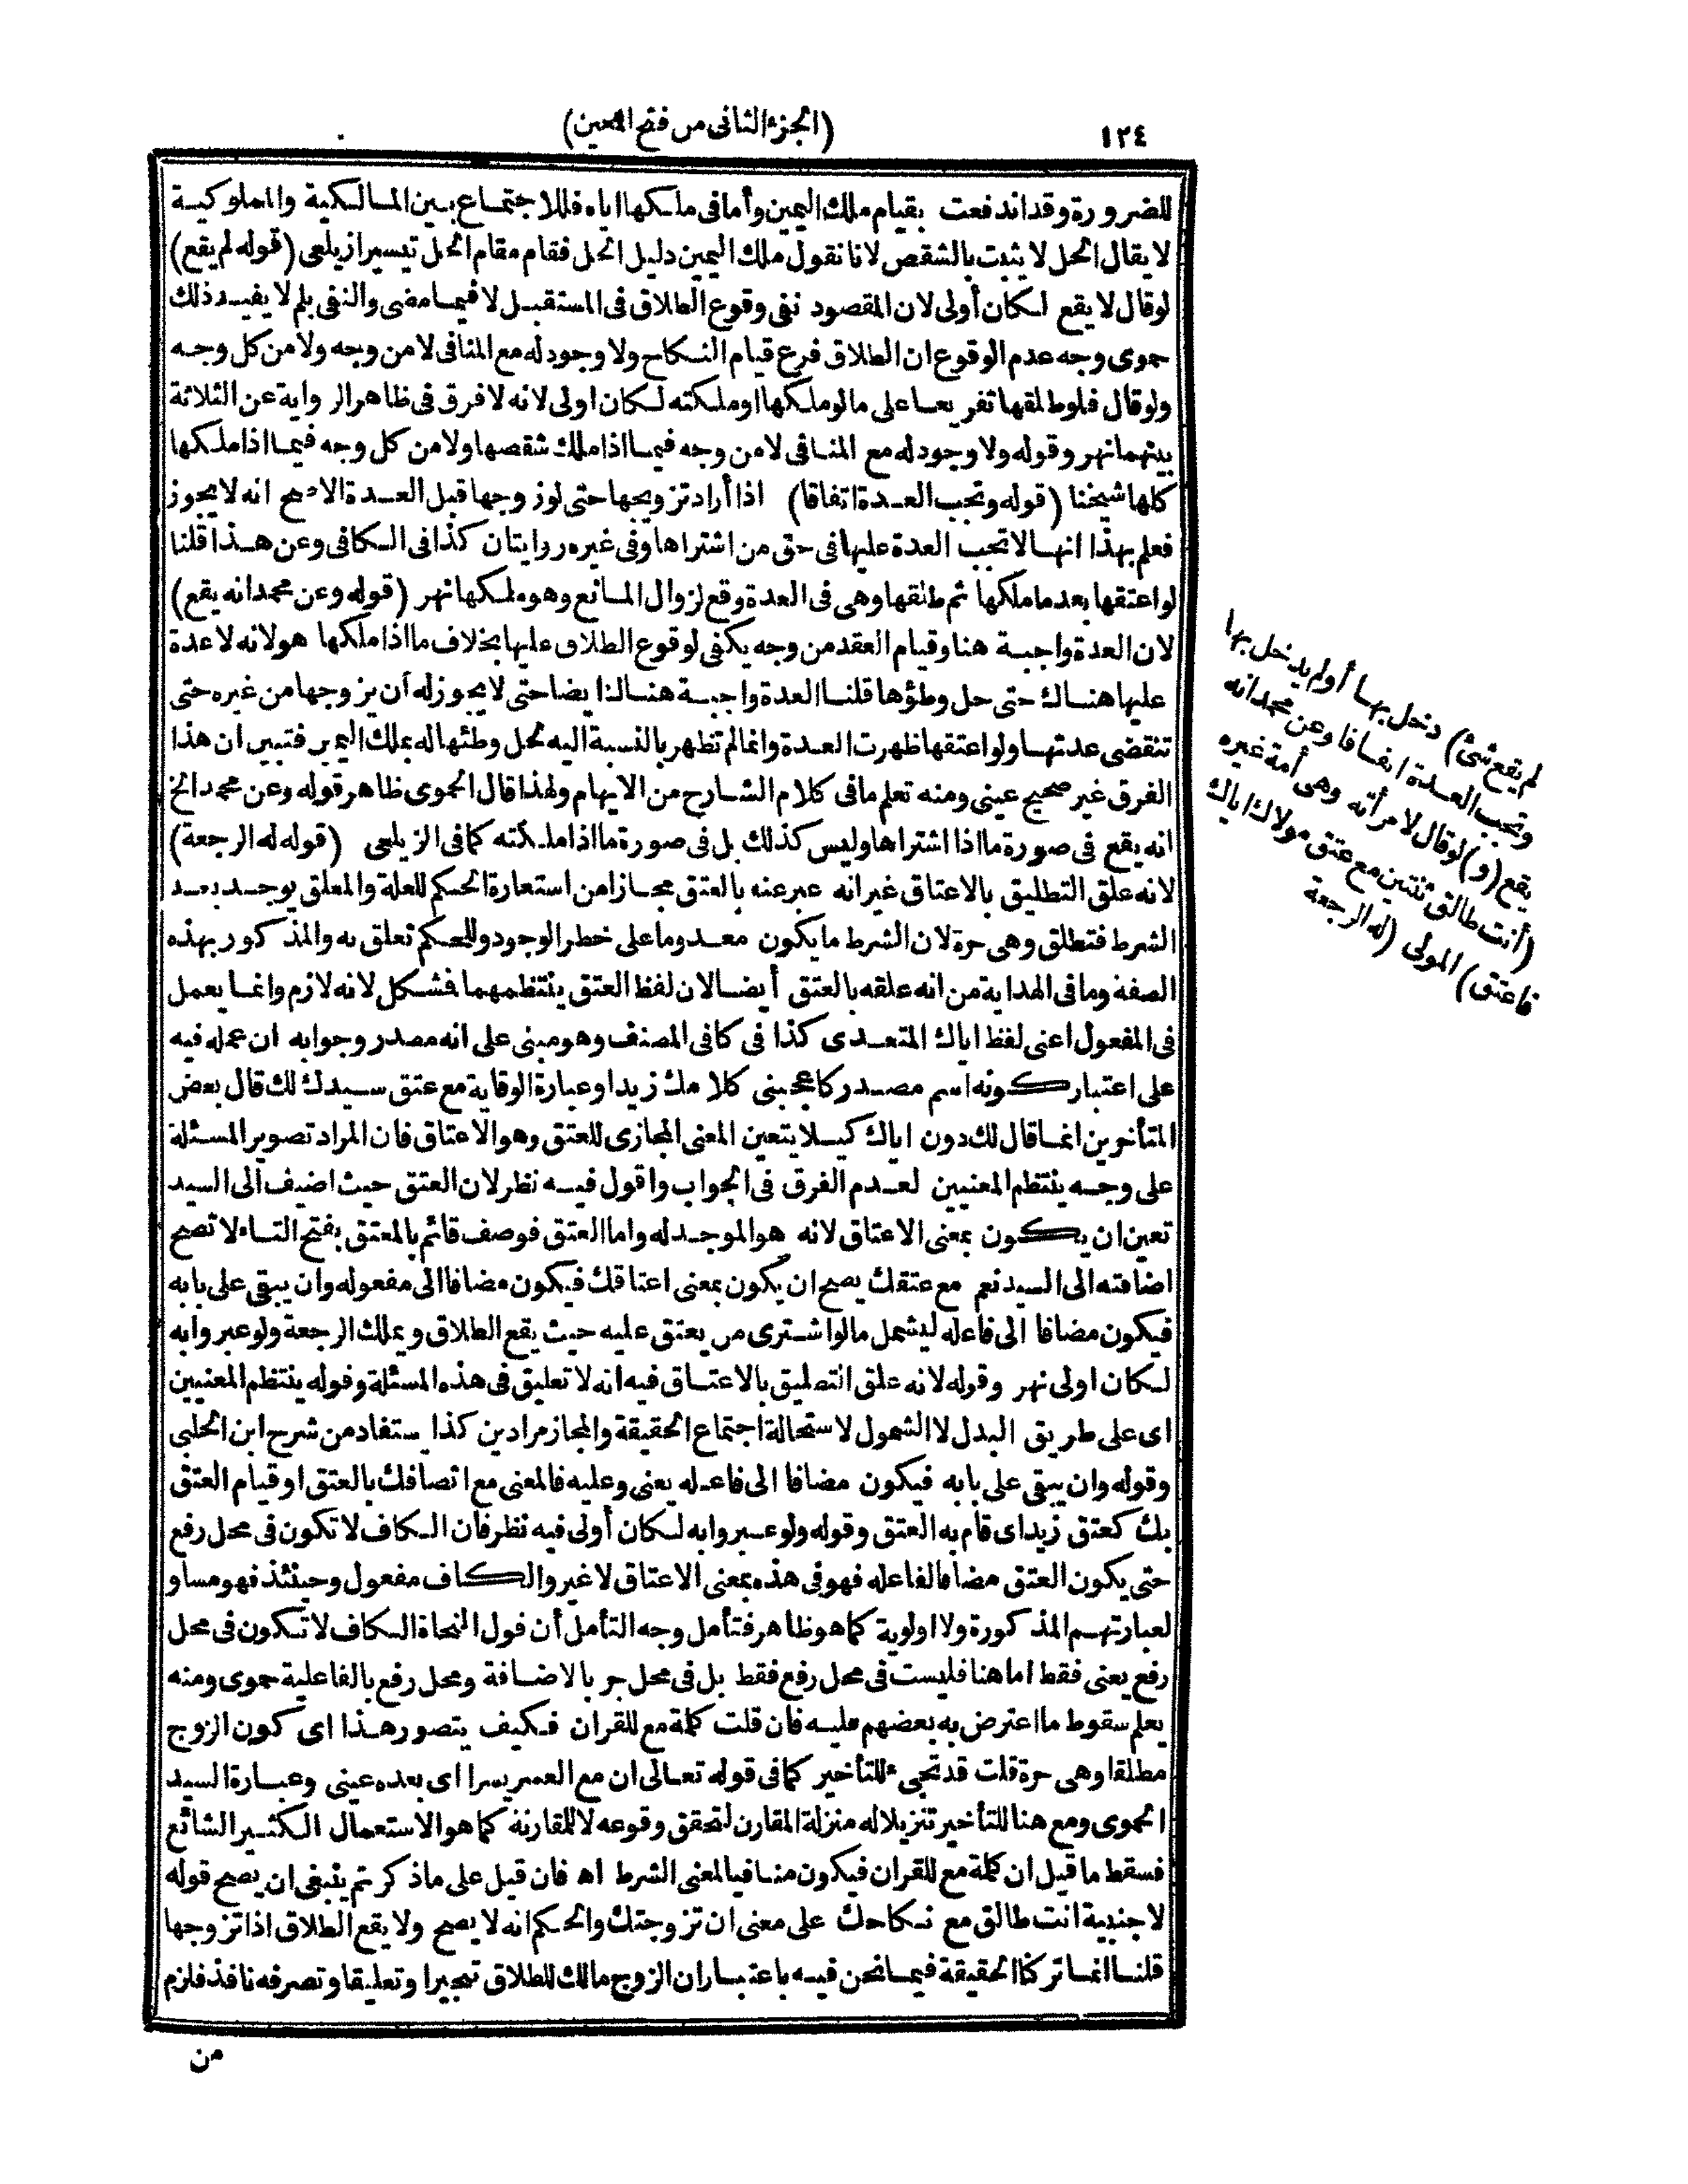 ١٢٤
(الجزء الثانى من فتح المعين)
للضرورة وقد اندفعت بقيام ملك اليمين وأما فى ملكها اياه فللاجتماع بين المالكية والمملوكية
لا يقال الحل لا يثبت بالشقص لانا نقول ملك اليمين دليل الحل فقام مقام الحل تيسيرا زيلعى (قوله لم يقع)
لو قال لا يقع لكان أولى لان المقصود نفى وقوع الطلاق فى المستقبل لا فيما مضى والنفى بلم لا يفيد ذلك
حموى وجه عدم الوقوع ان الطلاق فرع قيام النكاح ولا وجود له مع المنافى لا من وجه ولا من كل وجه
ولو قال فلو طلقها تفريعا على ما لو ملكها او ملكته لكان اولى لانه لا فرق فى ظاهر الرواية عن الثلاثة
بينهما نهر وقوله ولا وجود له مع المنافى لا من وجه فيما اذا ملك شقصها ولا من كل وجه فيما اذا ملكها
كلها شيخنا (قوله وتجب العدة اتفاقا) اذا أراد تزويجها حتى لو زوجها قبل العدة الاصح انه لا يجوز
فعلم بهذا انها لا تجب العدة عليها فى حق من اشتراها وفى غيره روايتان كذا فى الكافى وعن هذا قلنا
لو اعتقها بعد ما ملكها ثم طلقها وهى فى العدة وقع لزوال المانع وهو ملكها نهر (قوله وعن محمد انه يقع)
لان العدة واجبة هنا وقيام العقد من وجه يكفى لوقوع الطلاق عليها بخلاف ما اذا ملكها هو لانه لا عدة
عليها هناك حتى حل وطؤها قلنا العدة واجبة هناك ايضا حتى لا يجوز له أن يزوجها من غيره حتى
تنقضى عدتها ولو اعتقها ظهرت العدة وانما لم تظهر بالنسبة اليه لحل وطئها له بملك اليمين فتبين ان هذا
الفرق غير صحيح عينى ومنه تعلم ما فى كلام الشارح من الايهام ولهذا قال الحموى ظاهر قوله وعن محمد الخ
انه يقع فى صورة ما اذا اشتراها وليس كذلك بل فى صورة ما اذا ملكته كما فى الزيلعى (قوله له الرجعة)
لانه علق التطليق بالاعتاق غير انه عبر عنه بالعتق مجازا من استعارة الحكم للعلة والمعلق يوجد بعد
الشرط فتطلق وهى حرة لان الشرط ما يكون معدوما على خطر الوجود وللحكم تعلق به والمذكور بهذه
الصفة وما فى الهداية من انه علقه بالعتق أيضا لان لفظ العتق ينتظمهما فشكل لانه لازم وانما يعمل
فى المفعول اعنى لفظ اياك المتعدى كذا فى كافى المصنف وهو مبنى على انه مصدر وجوابه ان عمله فيه
على اعتبار كونه اسم مصدر كاعجبنى كلامك زيدا وعبارة الوقاية مع عتق سيدك لك قال بعض
المتأخرين انما قال لك دون اياك كيلا يتعين المعنى المجازى للعتق وهو الاعتاق فان المراد تصوير المسئلة
على وجه ينتظم المعنيين لعدم الفرق فى الجواب واقول فيه نظر لان العتق حيث اضيف الى السيد
تعين ان يكون بمعنى الاعتاق لانه هو الموجد له واما العتق فوصف قائم بالمعتق بفتح التاء لا تصح
اضافته الى السيد نعم مع عتقك يصح ان يكون بمعنى اعتاقك فيكون مضافا الى مفعوله وان يبقى على بابه
فيكون مضافا الى فاعله ليشمل ما لو اشترى من يعتق عليه حيث يقع الطلاق ويملك الرجعة ولو عبروا به
لكان اولى نهر وقوله لانه علق التطليق بالاعتاق فيه انه لا تعليق فى هذه المسئلة وقوله ينتظم المعنيين
اى على طريق البدل لا الشمول لاستحالة اجتماع الحقيقة والمجاز مرادين كذا يستفاد من شرح ابن الحلبى
وقوله وان يبقى على بابه فيكون مضافا الى فاعله يعنى وعليه فالمعنى مع اتصافك بالعتق او قيام العتق
بك كعتق زيد اى قام به العتق وقوله ولو عبروا به لكان أولى فيه نظر فان الكاف لا تكون فى محل رفع
حتى يكون العتق مضافا لفاعله فهو فى هذه بمعنى الاعتاق لا غير والكاف مفعول وحينئذ فهو مساو
لعبارتهم المذكورة ولا اولوية كما هو ظاهر فتأمل وجه التأمل أن قول النحاة الكاف لا تكون فى محل
رفع يعنى فقط اما هنا فليست فى محل رفع فقط بل فى محل جر بالاضافة ومحل رفع بالفاعلية حموى ومنه
يعلم سقوط ما اعترض به بعضهم عليه فان قلت كلمة مع للقران فكيف يتصور هذا اى كون الزوج
مطلقا وهى حرة قلت قد تجىء للتأخير كما فى قوله تعالى ان مع العسر يسرا اى بعده عينى وعبارة السيد
الحموى ومع هنا للتأخير تنزيلا له منزلة المقارن لتحقق وقوعه لا للمقارنة كما هو الاستعمال الكثير الشائع
فسقط ما قيل ان كلمة مع للقران فيكون منافيا لمعنى الشرط اه فان قيل على ما ذكرتم ينبغى ان يصح قوله
لاجنبية انت طالق مع نكاحك على معنى ان تزوجتك والحكم انه لا يصح ولا يقع الطلاق اذا تزوجها
قلنا انما تركنا الحقيقة فيما نحن فيه باعتبار ان الزوج مالك للطلاق تنجيزا وتعليقا وتصرفه نافذ فلزم
من
لم يقع شئ) دخل بها أو لم يدخل بها
وتجب العدة اتفاقا وعن محمد انه
يقع (و) لو قال لامرأته وهى أمة غيره
(أنت طالق ثنتين مع عتق مولاك اياك
فاعتق) المولى (له الرجعة